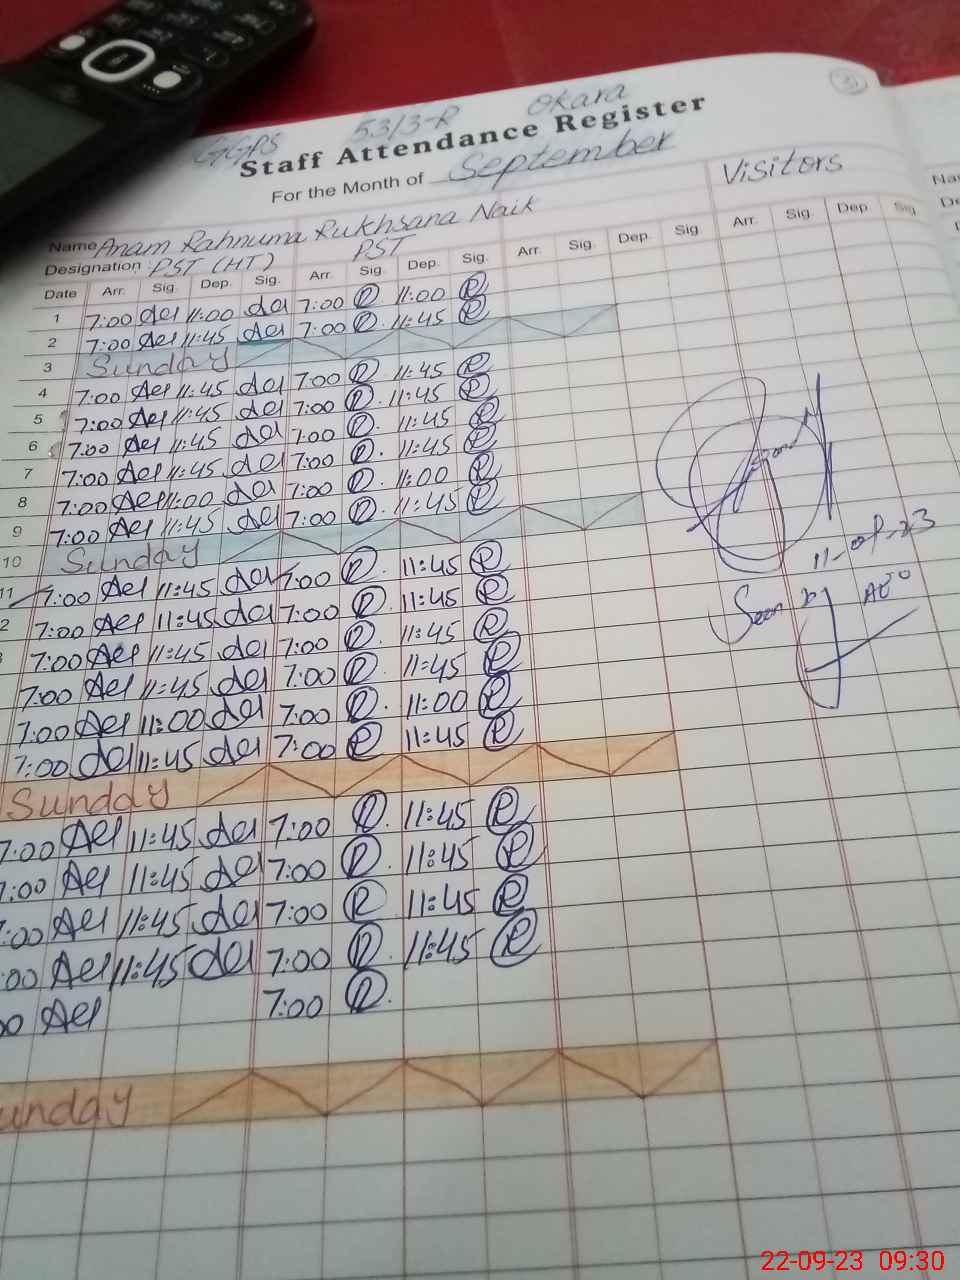 GGPS 53/3-R Okara
3
Staff Attendance Register
For the Month of September
Visitors
Name Anam Rahnuma Rukhsana Naik
Designation PST (HT) PST
Date Arr. Sig. Dep. Sig. Arr. Sig. Dep. Sig. Arr. Sig. Dep. Sig. Arr. Sig. Dep Sig.
1 7:00 11:00 7:00 R 11:00 R
2 7:00 11:45 7:00 R 11:45 R
3 Sunday
4 7:00 11:45 7:00 R 11:45 R
5 7:00 11:45 7:00 R 11:45 R
6 7:00 11:45 7:00 R 11:45 R
7 7:00 11:45 7:00 R 11:45 R
8 7:00 11:00 7:00 R 11:00 R
9 7:00 11:45 7:00 R 11:45 R
10 Sunday
11 7:00 11:45 7:00 R 11:45 R
2 7:00 11:45 7:00 R 11:45 R
7:00 11:45 7:00 R 11:45 R
7:00 11:45 7:00 R 11:45 R
7:00 11:00 7:00 R 11:00 R
7:00 11:45 7:00 R 11:45 R
Sunday
7:00 11:45 7:00 R 11:45 R
7:00 11:45 7:00 R 11:45 R
:00 11:45 7:00 R 11:45 R
:00 11:45 7:00 R 11:45 R
00 7:00 R
unday
11-09-23
Seen by AEO
22-09-23 09:30